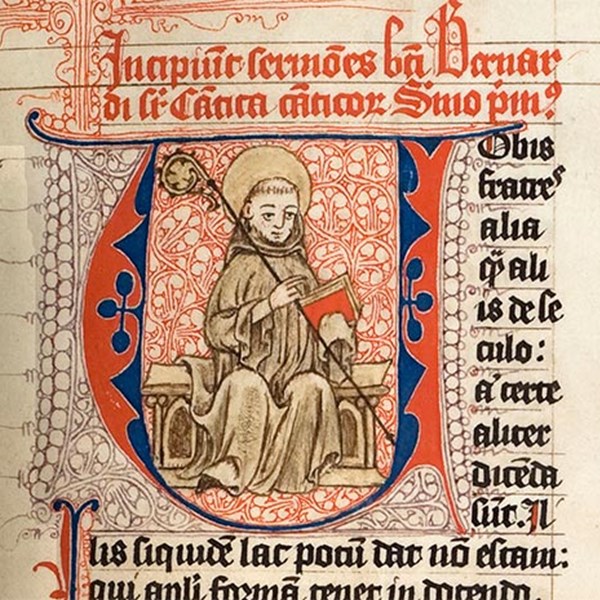 Incipiūt sermōes bti Bernar
di sr̄ Cātica cāticoꝝ Smo p̄mꝰ
Obis
fratres
alia
q̄ ali
is de se
culo:
a' certe
aliter
dicēda
sūt. Il
lis siquidē lac potū dat nō escam:
qui apli formā tenet in docendo.